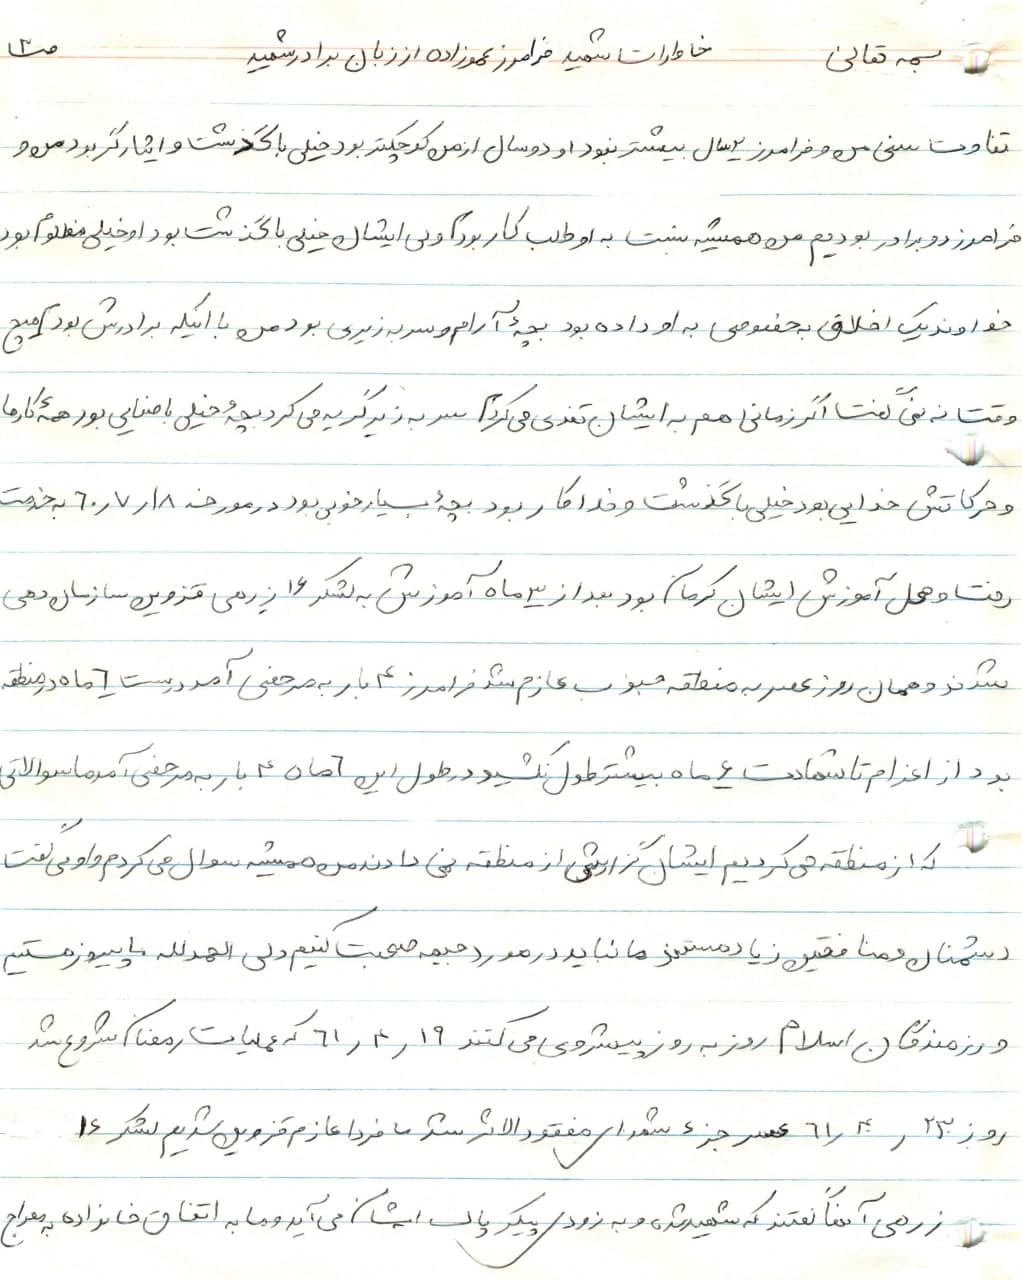 بسمه تعالی خاطرات شهید فرامرز عموزاده از زبان برادر شهید ص۱
تفاوت سنی من و فرامرز ۲ سال بیشتر نبود او دو سال از من کوچکتر بود خیلی با گذشت و ایثارگر بود من و
فرامرز دو برادر بودیم من همیشه نسبت به او طلب کار بودم ولی ایشان خیلی با گذشت بود او خیلی مظلوم بود
خداوند یک اخلاق به خصوصی به او داده بود بچهٔ آرام و سر به زیری بود من با اینکه برادرش بودم هیچ
وقت نه نمی گفت اگر زمانی هم به ایشان تعدی می کردم سر به زیر گریه می کرد بچهٔ خیلی با صفایی بود همهٔ کارها
و حرکاتش خدایی بود خیلی با گذشت و فداکار بود بچهٔ بسیار خوبی بود در مورخه ۱۸ر۷ر۶۰ به خدمت
رفت و محل آموزش ایشان کرمان بود بعد از ۳ ماه آموزش به لشکر ۱۶ زرهی قزوین سازمان دهی
شدند و همان روز عصر به منطقه جنوب عازم شد فرامرز ۴ بار به مرخصی آمد درست ۶ ماه در منطقه
بود از اعزام تا شهادت ۶ ماه بیشتر طول نکشید در طول این ۶ ماه ۴ بار به مرخصی آمد ما سوالاتی
که از منطقه می کردیم ایشان گزارشی از منطقه نمی دادند من همیشه سوال می کردم و او می گفت
دشمنان و منافقین زیاد هستند ما نباید در مورد جبهه صحبت کنیم ولی الحمدلله ما پیروز هستیم
و رزمندگان اسلام روز به روز پیشروی می کنند ۱۹ر۴ر۶۱ که عملیات رمضان شروع شد
روز ۲۳ر۴ر۶۱ عصر جزء شهدای مفقودالاثر شد ما فردا عازم قزوین شدیم لشکر ۱۶
زرهی آنها گفتند که شهید شده و به زودی پیکر پاک ایشان می آید و ما به اتفاق خانواده به معراج